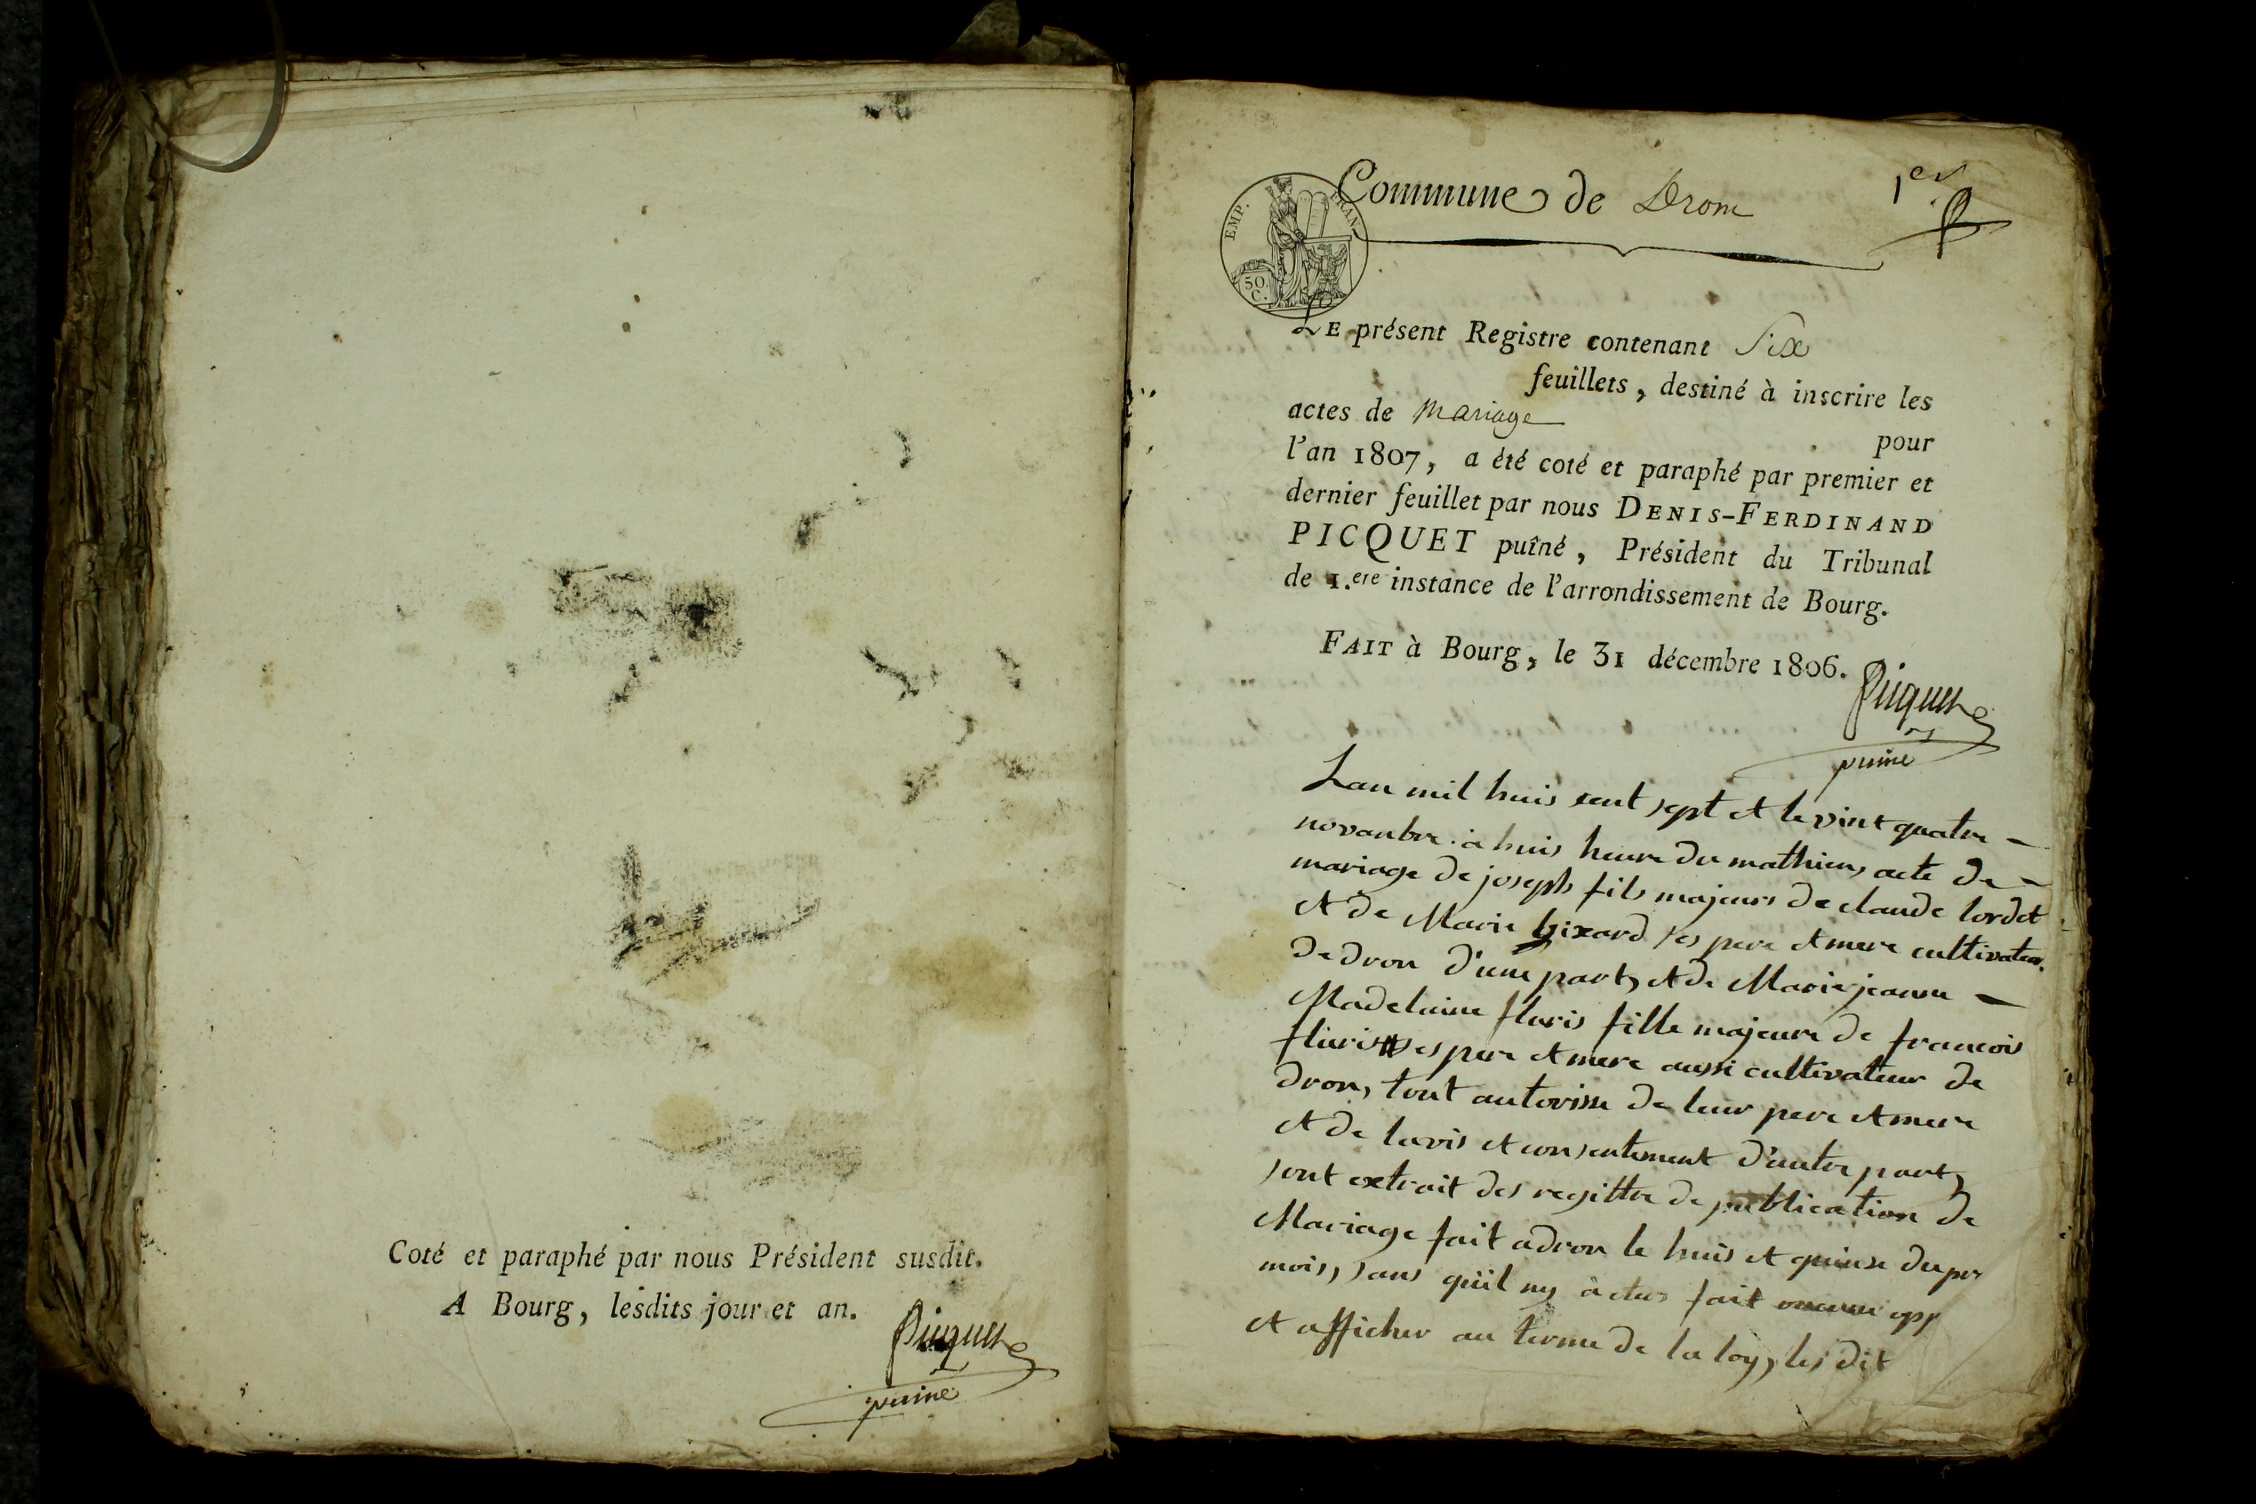 Coté et paraphé par nous Président susdit.
A Bourg, lesdits jour et an.
Picquet
puiné
1er
Commune de Drom
EMP. FRAN.
50 C.
LE présent Registre contenant Six
feuillets, destiné à inscrire les
actes de mariage
pour
l'an 1807, a été coté et paraphé par premier et
dernier feuillet par nous DENIS-FERDINAND
PICQUET puîné, Président du Tribunal
de 1.ere instance de l'arrondissement de Bourg.
FAIT à Bourg, le 31 décembre 1806.
Picquet
puiné
Lan mil huis cent sept et le vint quatre -
novanbre a huis heure du mathien, acte de -
mariage de joseph fils majeurs de claude lordet
et de Marie ses pere et mere cultivateur
de dron d'une part, et de Marie jeanne -
Madelaine fluris fille majeure de francois
fluris ses pere et mere aussi cultivateur de
dron, tout autorisse de leur pere et mere
et de lavis et consentement d'autre part,
sont extrait des regittre de publication de
Mariage fait a dron le huis et quinse du pr
mois, sans qu'il ny a fait opp
et afficher au terme de la loy, les dit